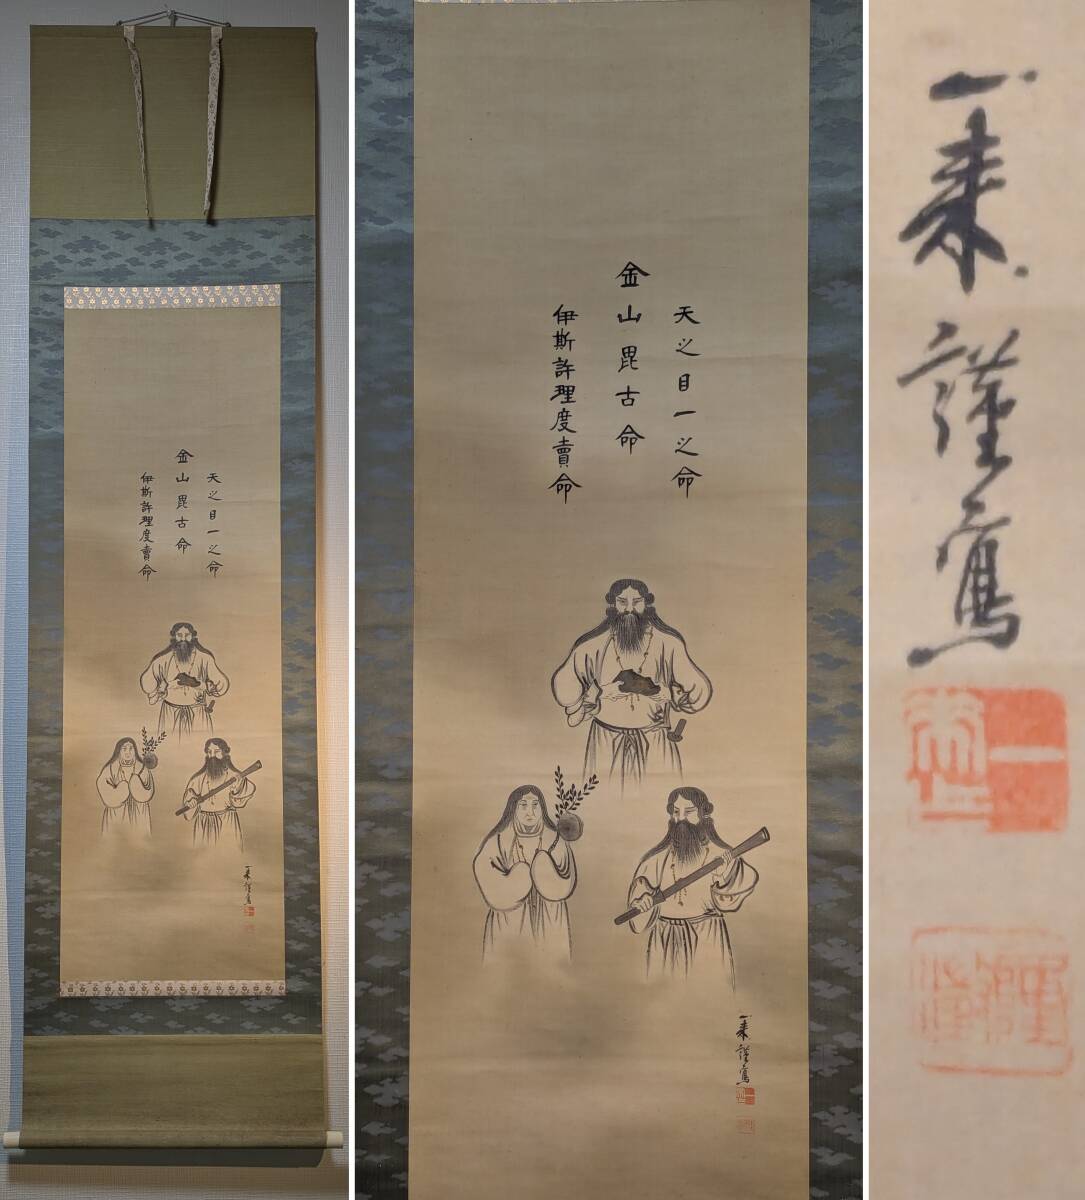 天之目一之命
金山毘古命
伊斯許理度賣命
天之目一之命
金山毘古命
伊斯許理度賣命
一來謹寫
一來謹寫
一來謹寫